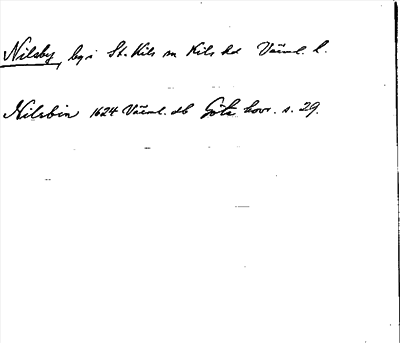 Nilsby, by i St. Kils sn Kils hd Värml. l.
Nilsbin 1624 Värml. db Göta hovr. s. 29.